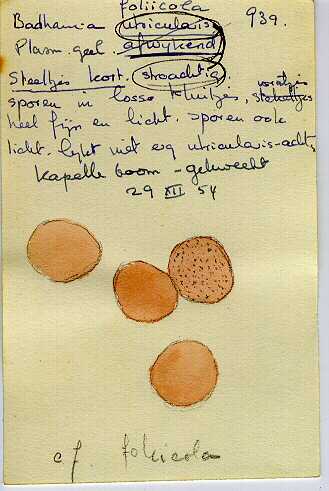 foliicola
Badhamia utricularis 939.
Plasm. geel. afwykend
Steeltjes kort. stroachtig.
sporen in losse kluitjes, stekeltjes
heel fijn en licht. sporen ook
licht. lykt niet erg utricularis-achtig
Kapelle boom - gekweekt
29 XII 54
cf foliicola